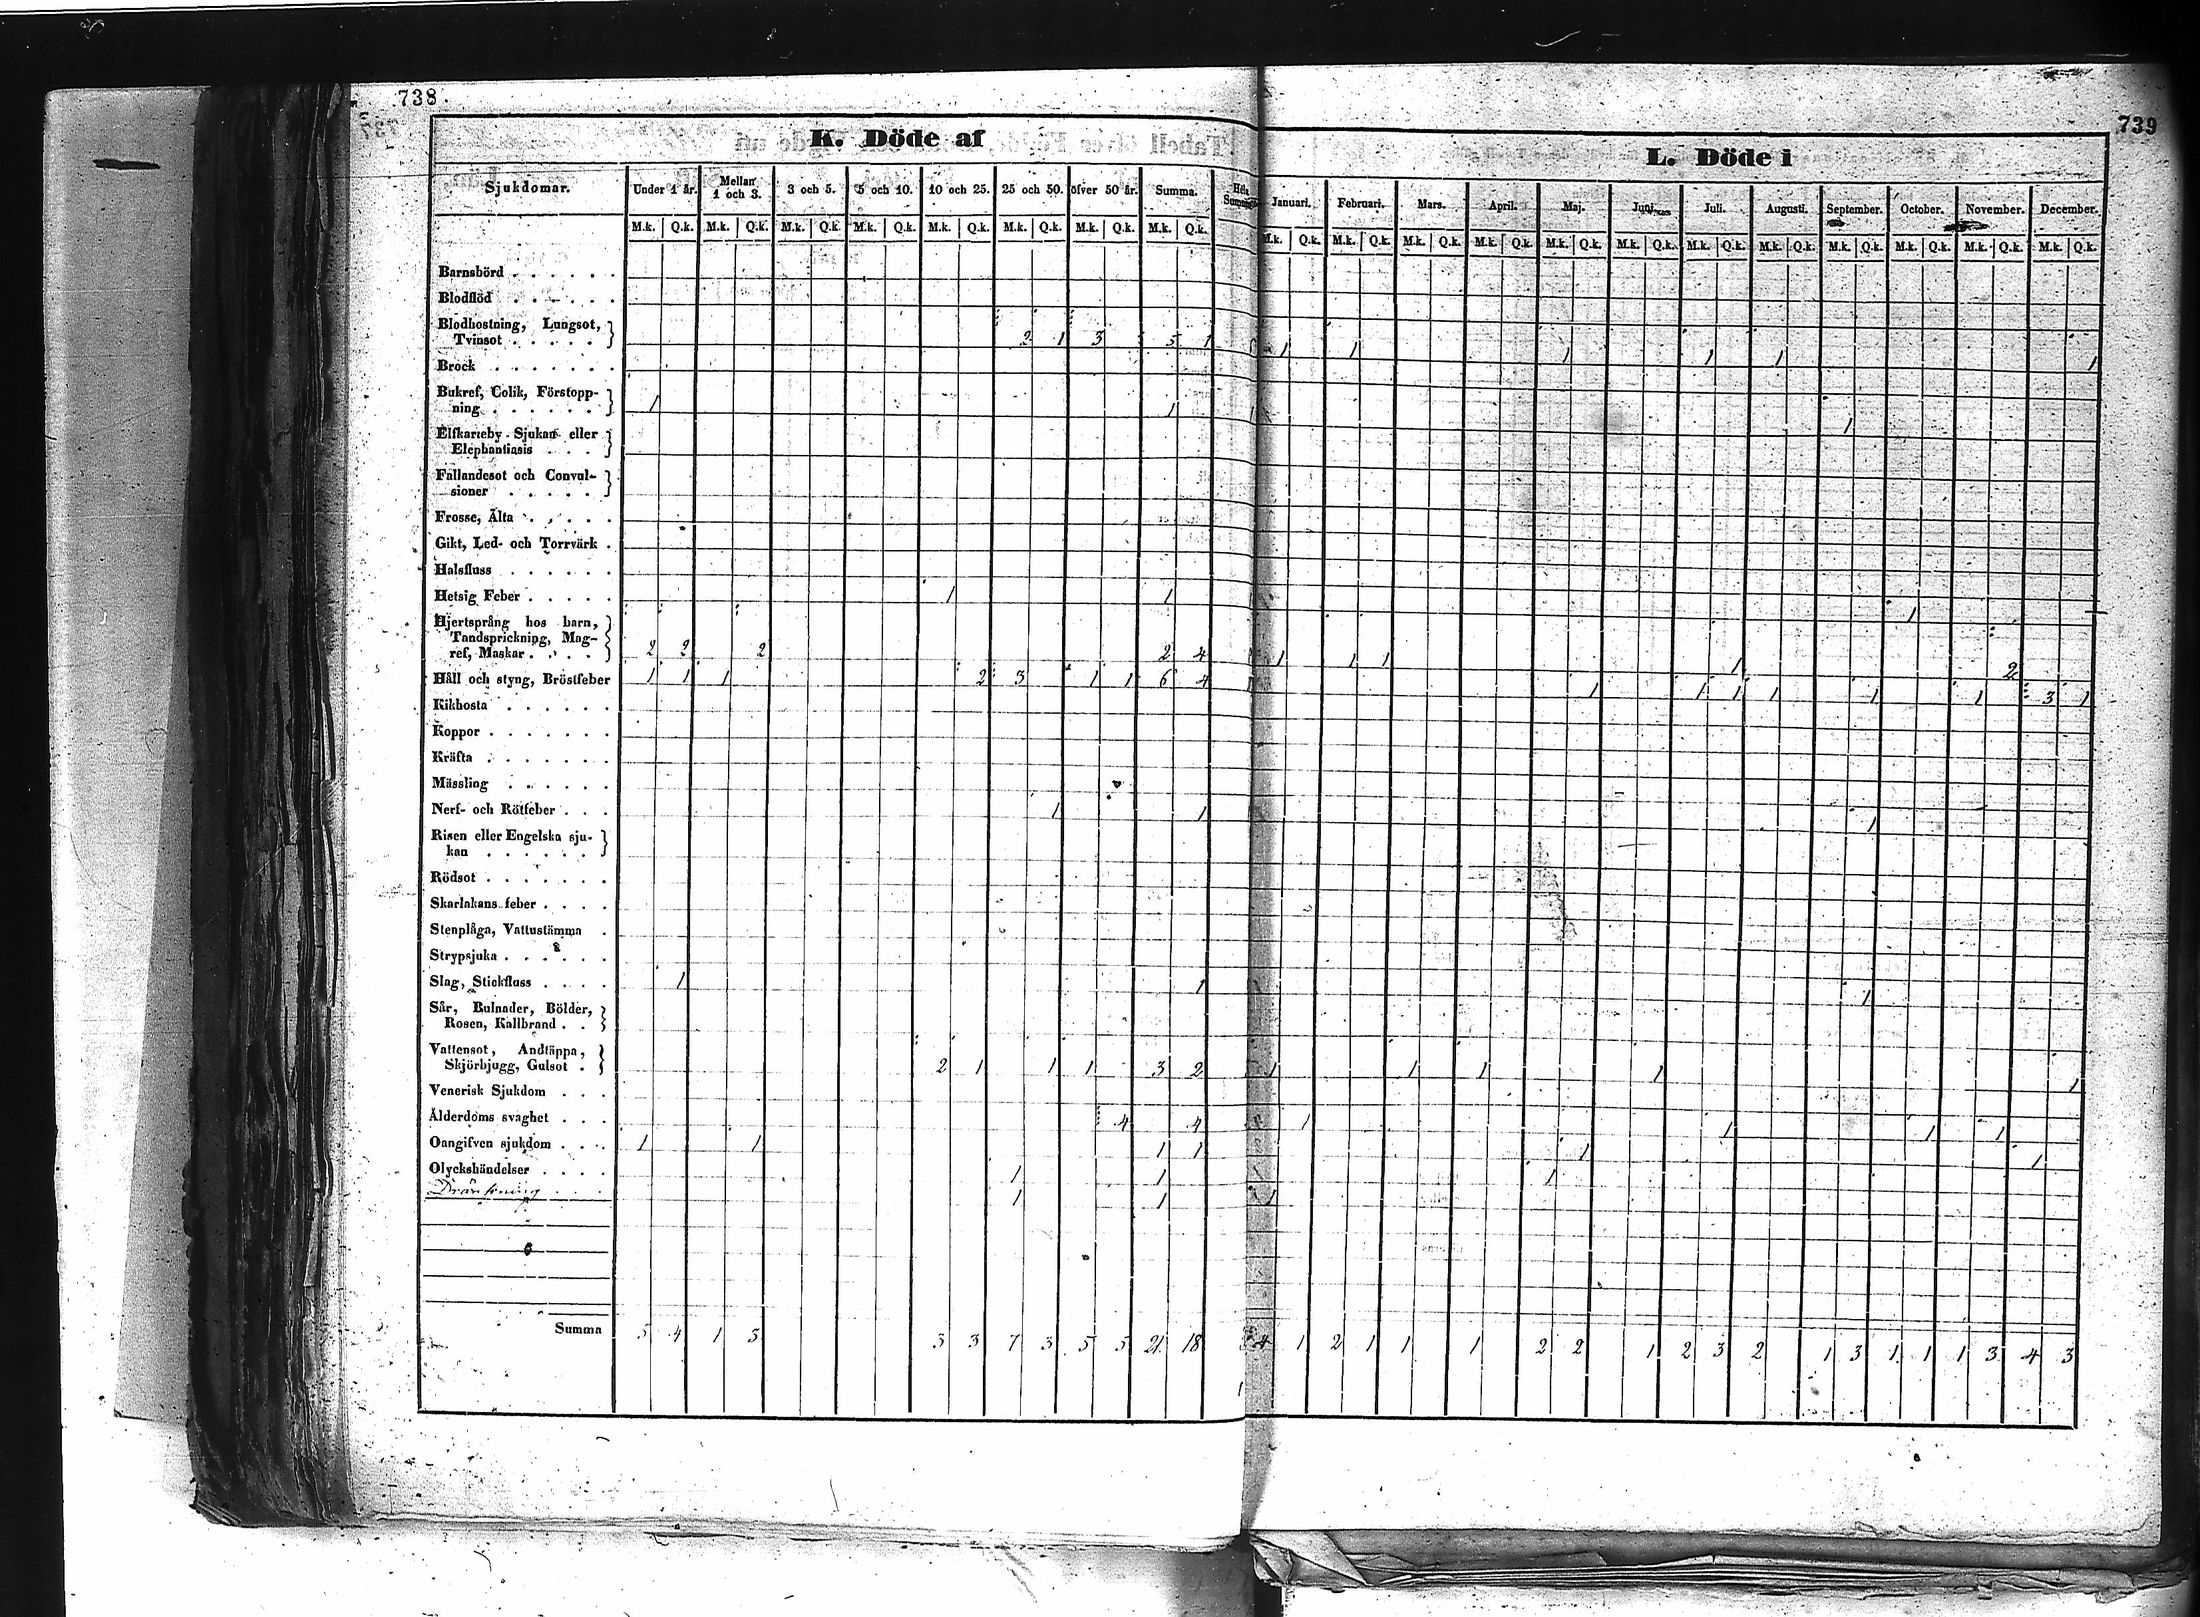 738
K. Döde af
Sjukdomar. Under 1 år. Mellan 1 och 3. 3 och 5. 5 och 10. 10 och 25. 25 och 50. öfver 50 år. Summa. Hela Summan
M.k. Q.k. M.k. Q.k. M.k. Q.k. M.k. Q.k. M.k. Q.k. M.k. Q.k. M.k. Q.k. M.k. Q.k.
Barnsbörd
Blodflöd
Blodhostning, Lungsot,
Tvinsot 2 1 3 5 1
Brock
Bukref, Colik, Förstopp-
ning 1 1
Elfkarleby Sjukan eller
Elephantiasis
Fallandesot och Convul-
sioner
Frosse, Älta
Gikt, Led- och Torrvärk
Halsfluss
Hetsig Feber 1 1
Hjertsprång hos barn,
Tandsprickning, Mag-
ref, Maskar 2 2 2 2 4
Håll och styng, Bröstfeber 1 1 1 2 3 1 1 6 4
Kikhosta
Koppor
Kräfta
Mässling
Nerf- och Rötfeber 1 1
Risen eller Engelska sju-
kan
Rödsot
Skarlakans feber
Stenplåga, Vattustämma
Strypsjuka
Slag, Stickfluss 1 1
Sår, Bulnader, Bölder,
Rosen, Kallbrand
Vattensot, Andtäppa,
Skjörbjugg, Gulsot 2 1 1 1 3 2
Venerisk Sjukdom
Ålderdoms svaghet 4 4
Oangifven sjukdom 1 1 1 1
Olyckshändelser 1 1
Dränkning 1 1
Summa 5 4 1 3 3 3 7 3 5 5 21 18
739
L. Döde i
Januari. Februari. Mars. April. Maj. Juni. Juli. Augusti. September. October. November. December.
M.k. Q.k. M.k. Q.k. M.k. Q.k. M.k. Q.k. M.k. Q.k. M.k. Q.k. M.k. Q.k. M.k. Q.k. M.k. Q.k. M.k. Q.k. M.k. Q.k. M.k. Q.k.
1 1 1 1 1 1
1
1
1 1 1 1 2
1 1 1 1 1 1 3 1
1
1
1 1 1 1 1
1 1 1 1
1 1
1
1
4 1 2 1 1 1 2 2 1 2 3 2 1 3 1 1 1 3 4 3